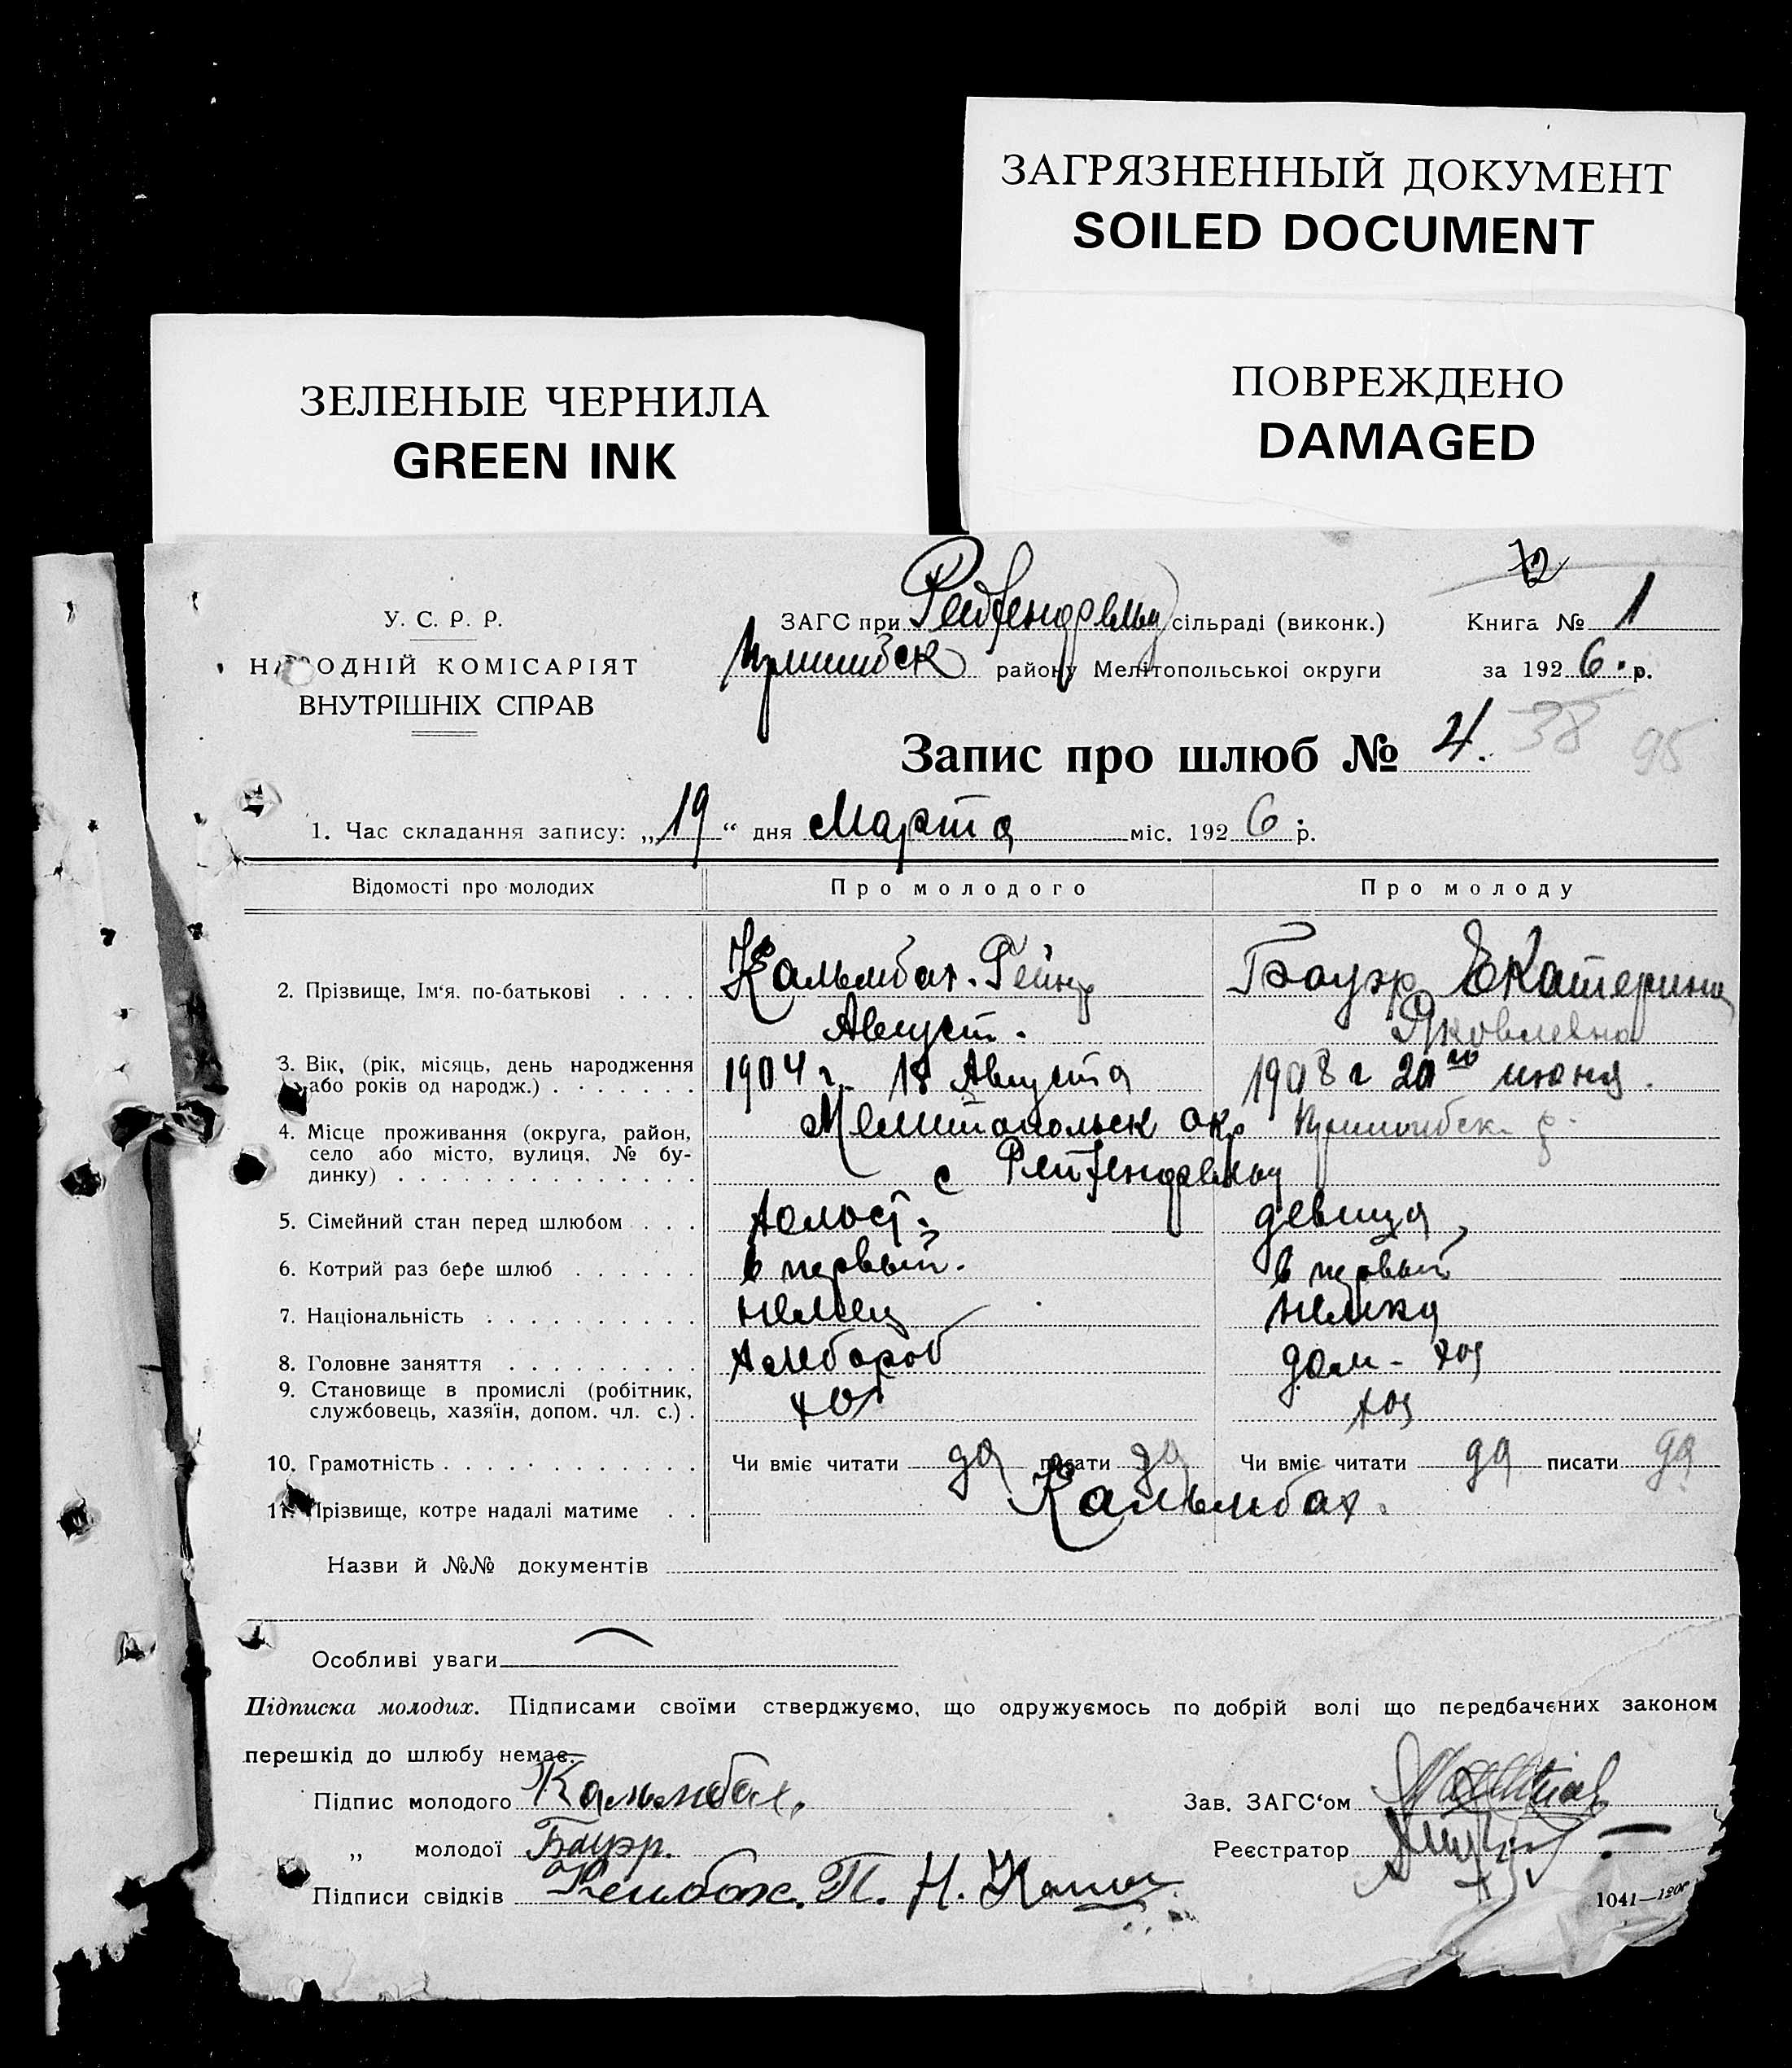 ЗАГРЯЗНЕННЫЙ ДОКУМЕНТ
SOILED DOCUMENT
ПОВРЕЖДЕНО
DAMAGED
ЗЕЛЕНЫЕ ЧЕРНИЛА
GREEN INK
У. С. Р. Р.
НАРОДНІЙ КОМІСАРІЯТ
ВНУТРІШНІХ СПРАВ
ЗАГС при Рейхенфельд сільраді (виконк.) Книга № 1
Пришибск району Мелітопольської округи за 1926 р.
Запис про шлюб № 4. 38 95
1. Час складання запису: „19“ дня Марта міс. 1926 р.
Відомості про молодих Про молодого Про молоду
2. Прізвище, Ім‘я. по-батькові Кальмбах Бауэр Екатерина
Август. Яковлевна
3. Вік, (рік, місяць, день народження 1904 г. 18 Августа 1908 г 20го июня.
або років од народж.)
4. Місце проживання (округа, район, Мелитопольск окр Пришибск р.
село або місто, вулиця, № бу- с Рейхенфельд
динку)
5. Сімейний стан перед шлюбом холост. девица
6. Котрий раз бере шлюб в первый. в первый
7. Національність немец немка
8. Головне заняття хлебороб дом-хоз
9. Становище в промислі (робітник,
службовець, хазяїн, допом. чл. с.) хоз хоз
10. Грамотність Чи вміє читати да писати да Чи вміє читати да писати да
11. Прізвище, котре надалі матиме Кальмбах.
Назви й №№ документів
Особливі уваги
Підписка молодих. Підписами своїми стверджуємо, що одружуємось по добрій волі що передбачених законом
перешкід до шлюбу немає.
Підпис молодого Кальмбах. Зав. ЗАГС‘ом
„ молодої Бауэр. Реєстратор
Підписи свідків П. Н.
1041—1200